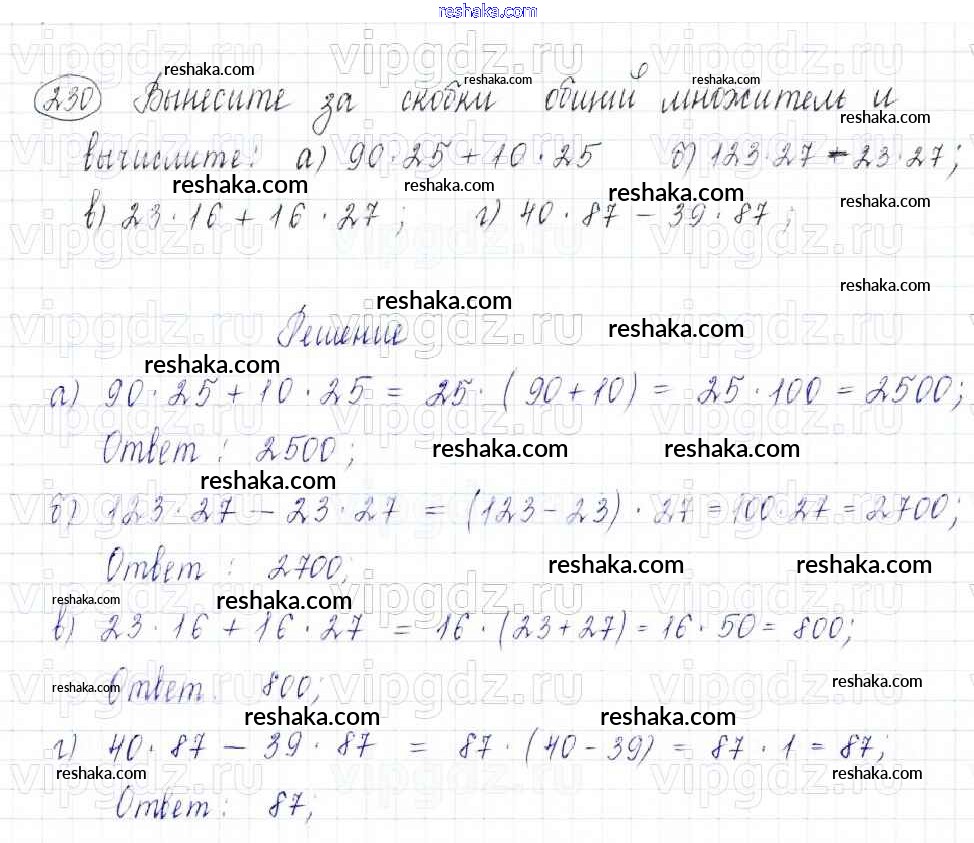 vipgdz.com
230 Вынесите за скобки общий множитель и
вычислите: а) 90·25+10·25 б) 123·27-23·27;
в) 23·16+16·27; г) 40·87-39·87;
Решение
а) 90·25+10·25 = 25·(90+10) = 25·100 = 2500;
Ответ: 2500;
б) 123·27-23·27 = (123-23)·27=100·27=2700;
Ответ: 2700;
в) 23·16+16·27 = 16·(23+27)=16·50=800;
Ответ: 800;
г) 40·87-39·87 = 87·(40-39) = 87·1=87;
Ответ: 87;
reshaka.com
vipgdz.ru